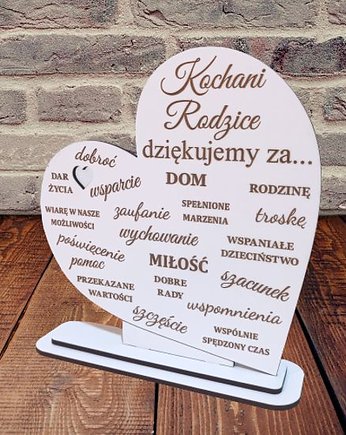 Kochani
Rodzice
dziękujemy za...
dobroć
DAR
ŻYCIA
wsparcie
DOM
RODZINĘ
WIARĘ W NASZE
MOŻLIWOŚCI
zaufanie
SPEŁNIONE
MARZENIA
troskę
wychowanie
poświęcenie
pomoc
MIŁOŚĆ
WSPANIAŁE
DZIECIŃSTWO
PRZEKAZANE
WARTOŚCI
DOBRE
RADY
szacunek
wspomnienia
szczęście
WSPÓLNIE
SPĘDZONY CZAS